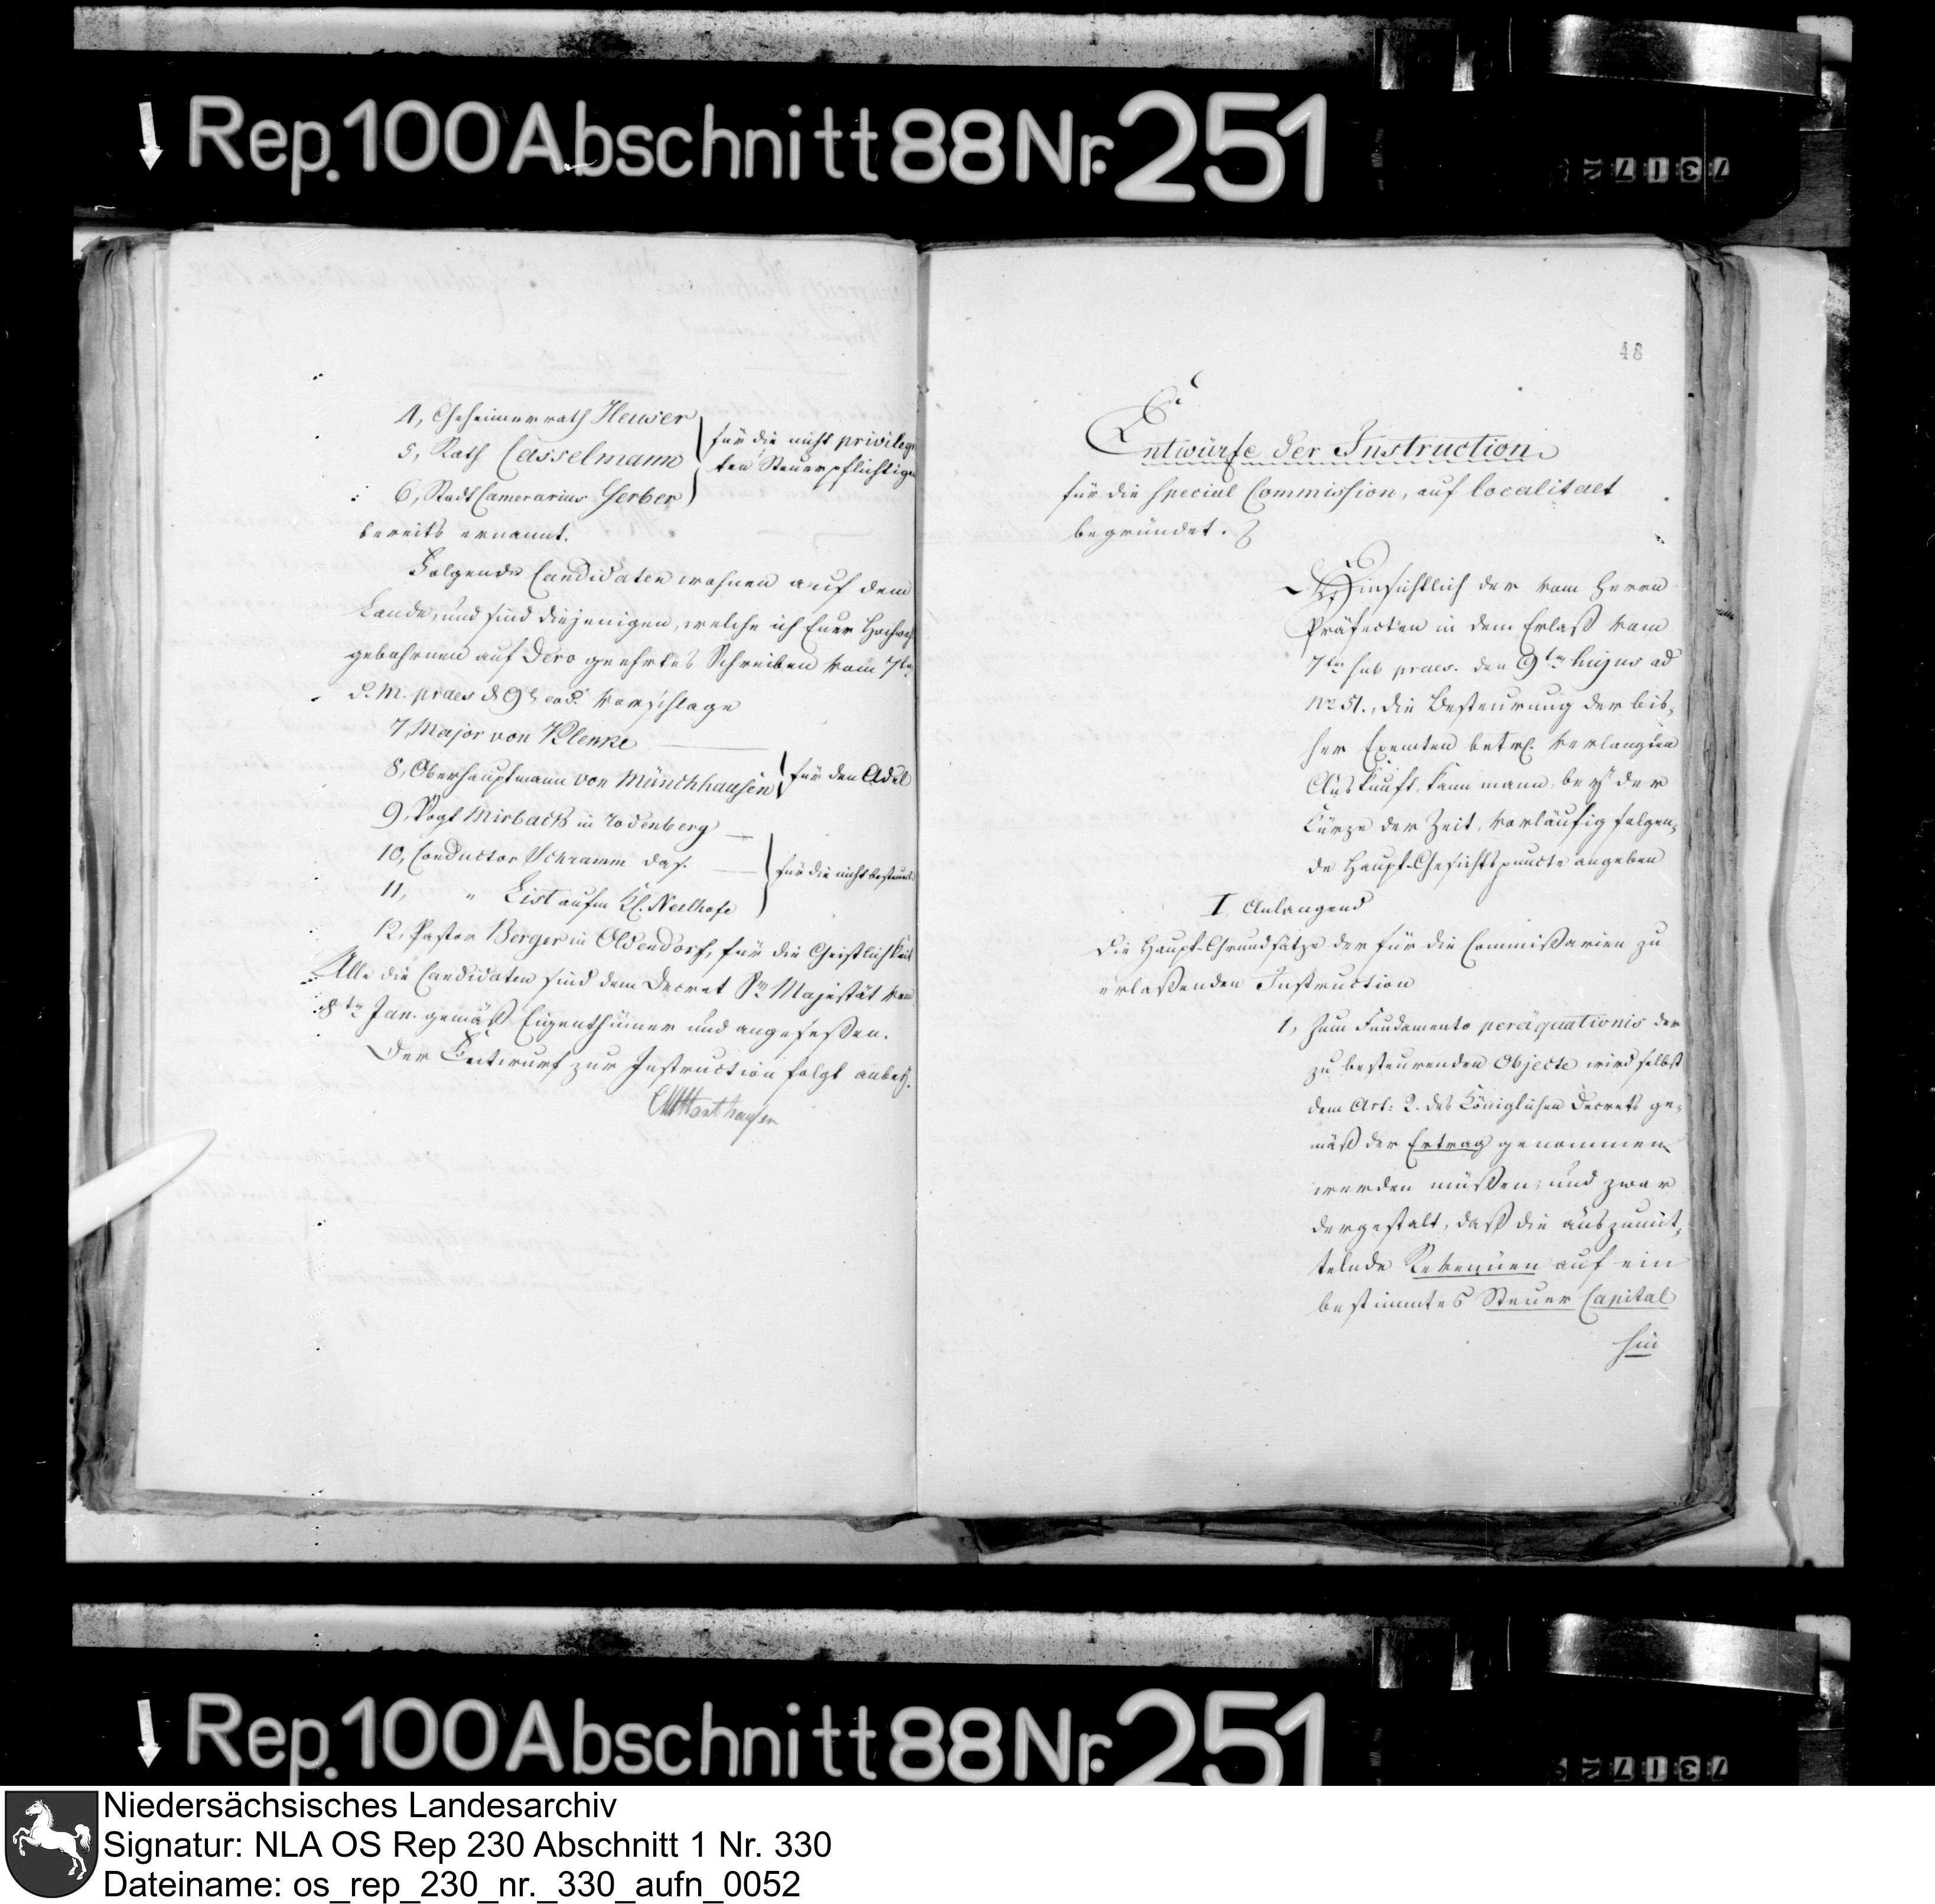 Rep. 100 Abschnitt 88 Nr. 251
4, Geheimerrath Heuser
5, Rath Casselmann
6, Stadt Camerarius Gerber
für die nicht privilegir
ten Steuerpflichtigen
bereits ernannt.
Folgende Candidaten wohnen auf dem
Lande, und sind diejenigen, welche ich Euer Hochwohl
gebohrnen auf Dero geehrtes Schreiben vom 7ten
d. M. praes d 9t eod. vorschlage
7, Major von Klenke
8, Oberhauptmann von Münchhausen
für den Adel
9, Vogt Mirbach in Rodenberg
10, Conductor Schramm das.
11, " List aufm Kl. Neelhofe
für die nicht besteuert.
12, Pastor Berger in Oldendorf, für die Geistlichkeit
Alle die Candidaten sind dem Decret Sr Majestät vom
8ten Jan. gemäß Eigenthümer und angeseßen.
Der Entwurf zur Instruction folgt anbey.
48
Entwürfe der Instruction
für die special Commission, auf localitaet
begründet.
Hinsichtlich der vom Herrn
Präfecten in dem Erlaß vom
7ten sub praes. den 9ten hujus ad
No 51., die Besteurung der bis,
her Exemten betref. verlangten
Auskunft, kann mann, bey der
Kürze der Zeit, vorläufig folgen,
de Haupt-Gesichtspuncte angeben
I Anlangend
die Haupt-Grundsätze der für die Commißarien zu
erlaßenden Instruction
1, Zum Fundamento peräquationis der
zu besteurenden Objecte wird selbst
dem Art: 2. des Königlichen Decrets ge,
mäß der Ertrag genommen
werden müßen; und zwar
dergestalt, daß die auszumit,
telnde Revenüen auf ein
bestimmtes Steuer Capital
hin
Rep. 100 Abschnitt 88 Nr. 251
Niedersächsisches Landesarchiv
Signatur: NLA OS Rep 230 Abschnitt 1 Nr. 330
Dateiname: os_rep_230_nr._330_aufn_0052